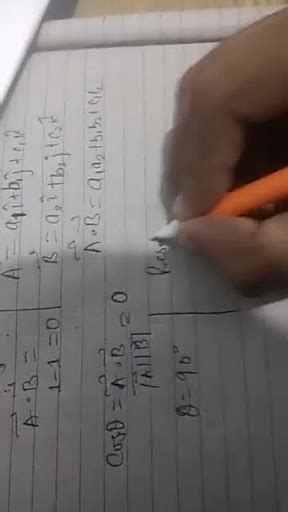 A⃗ = a₁î + b₁ĵ + c₁k̂
B⃗ = a₂î + b₂ĵ + c₂k̂
A⃗ · B⃗ = a₁a₂ + b₁b₂ + c₁c₂
Res
A⃗ · B⃗ =
1-1 = 0
Cosθ = A⃗ · B⃗ / |A||B| = 0
θ = 90°